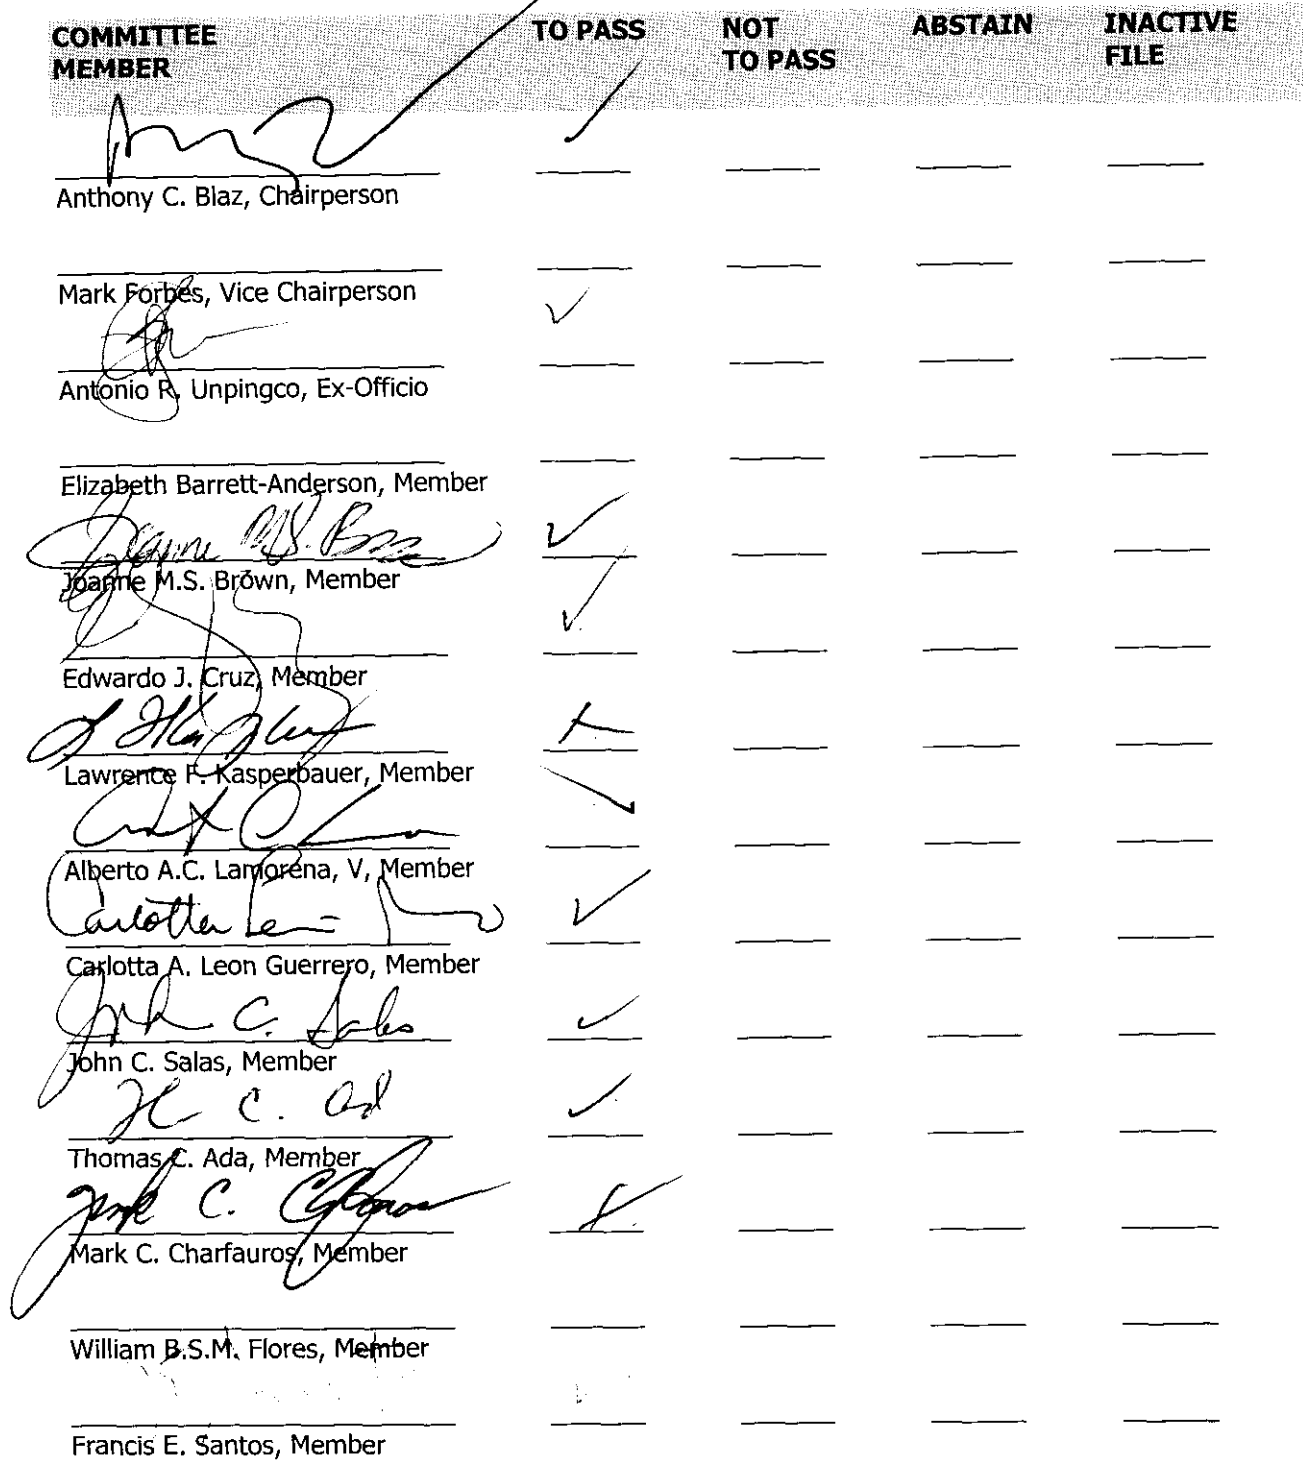 COMMITTEE MEMBER TO PASS NOT TO PASS ABSTAIN INACTIVE FILE
Anthony C. Blaz, Chairperson
Mark Forbes, Vice Chairperson
Antonio R. Unpingco, Ex-Officio
Elizabeth Barrett-Anderson, Member
Joanne M.S. Brown
Joanne M.S. Brown, Member
Edwardo J. Cruz, Member
Lawrence F. Kasperbauer, Member
Alberto A.C. Lamorena, V, Member
Carlotta Leon
Carlotta A. Leon Guerrero, Member
John C. Salas
John C. Salas, Member
Thomas C. Ada, Member
Mark C. Charfauros, Member
William B.S.M. Flores, Member
Francis E. Santos, Member